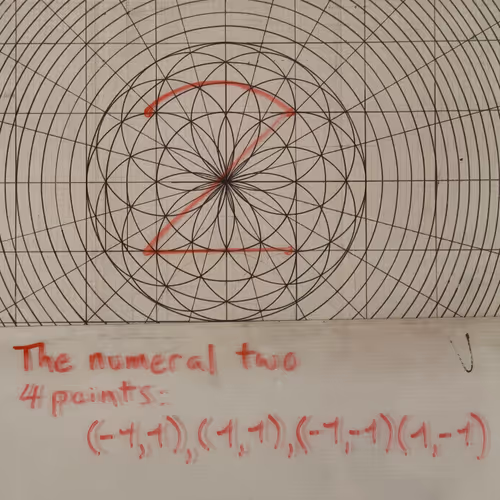 The numeral two
4 points:
(-1,1),(1,1),(-1,-1)(1,-1)